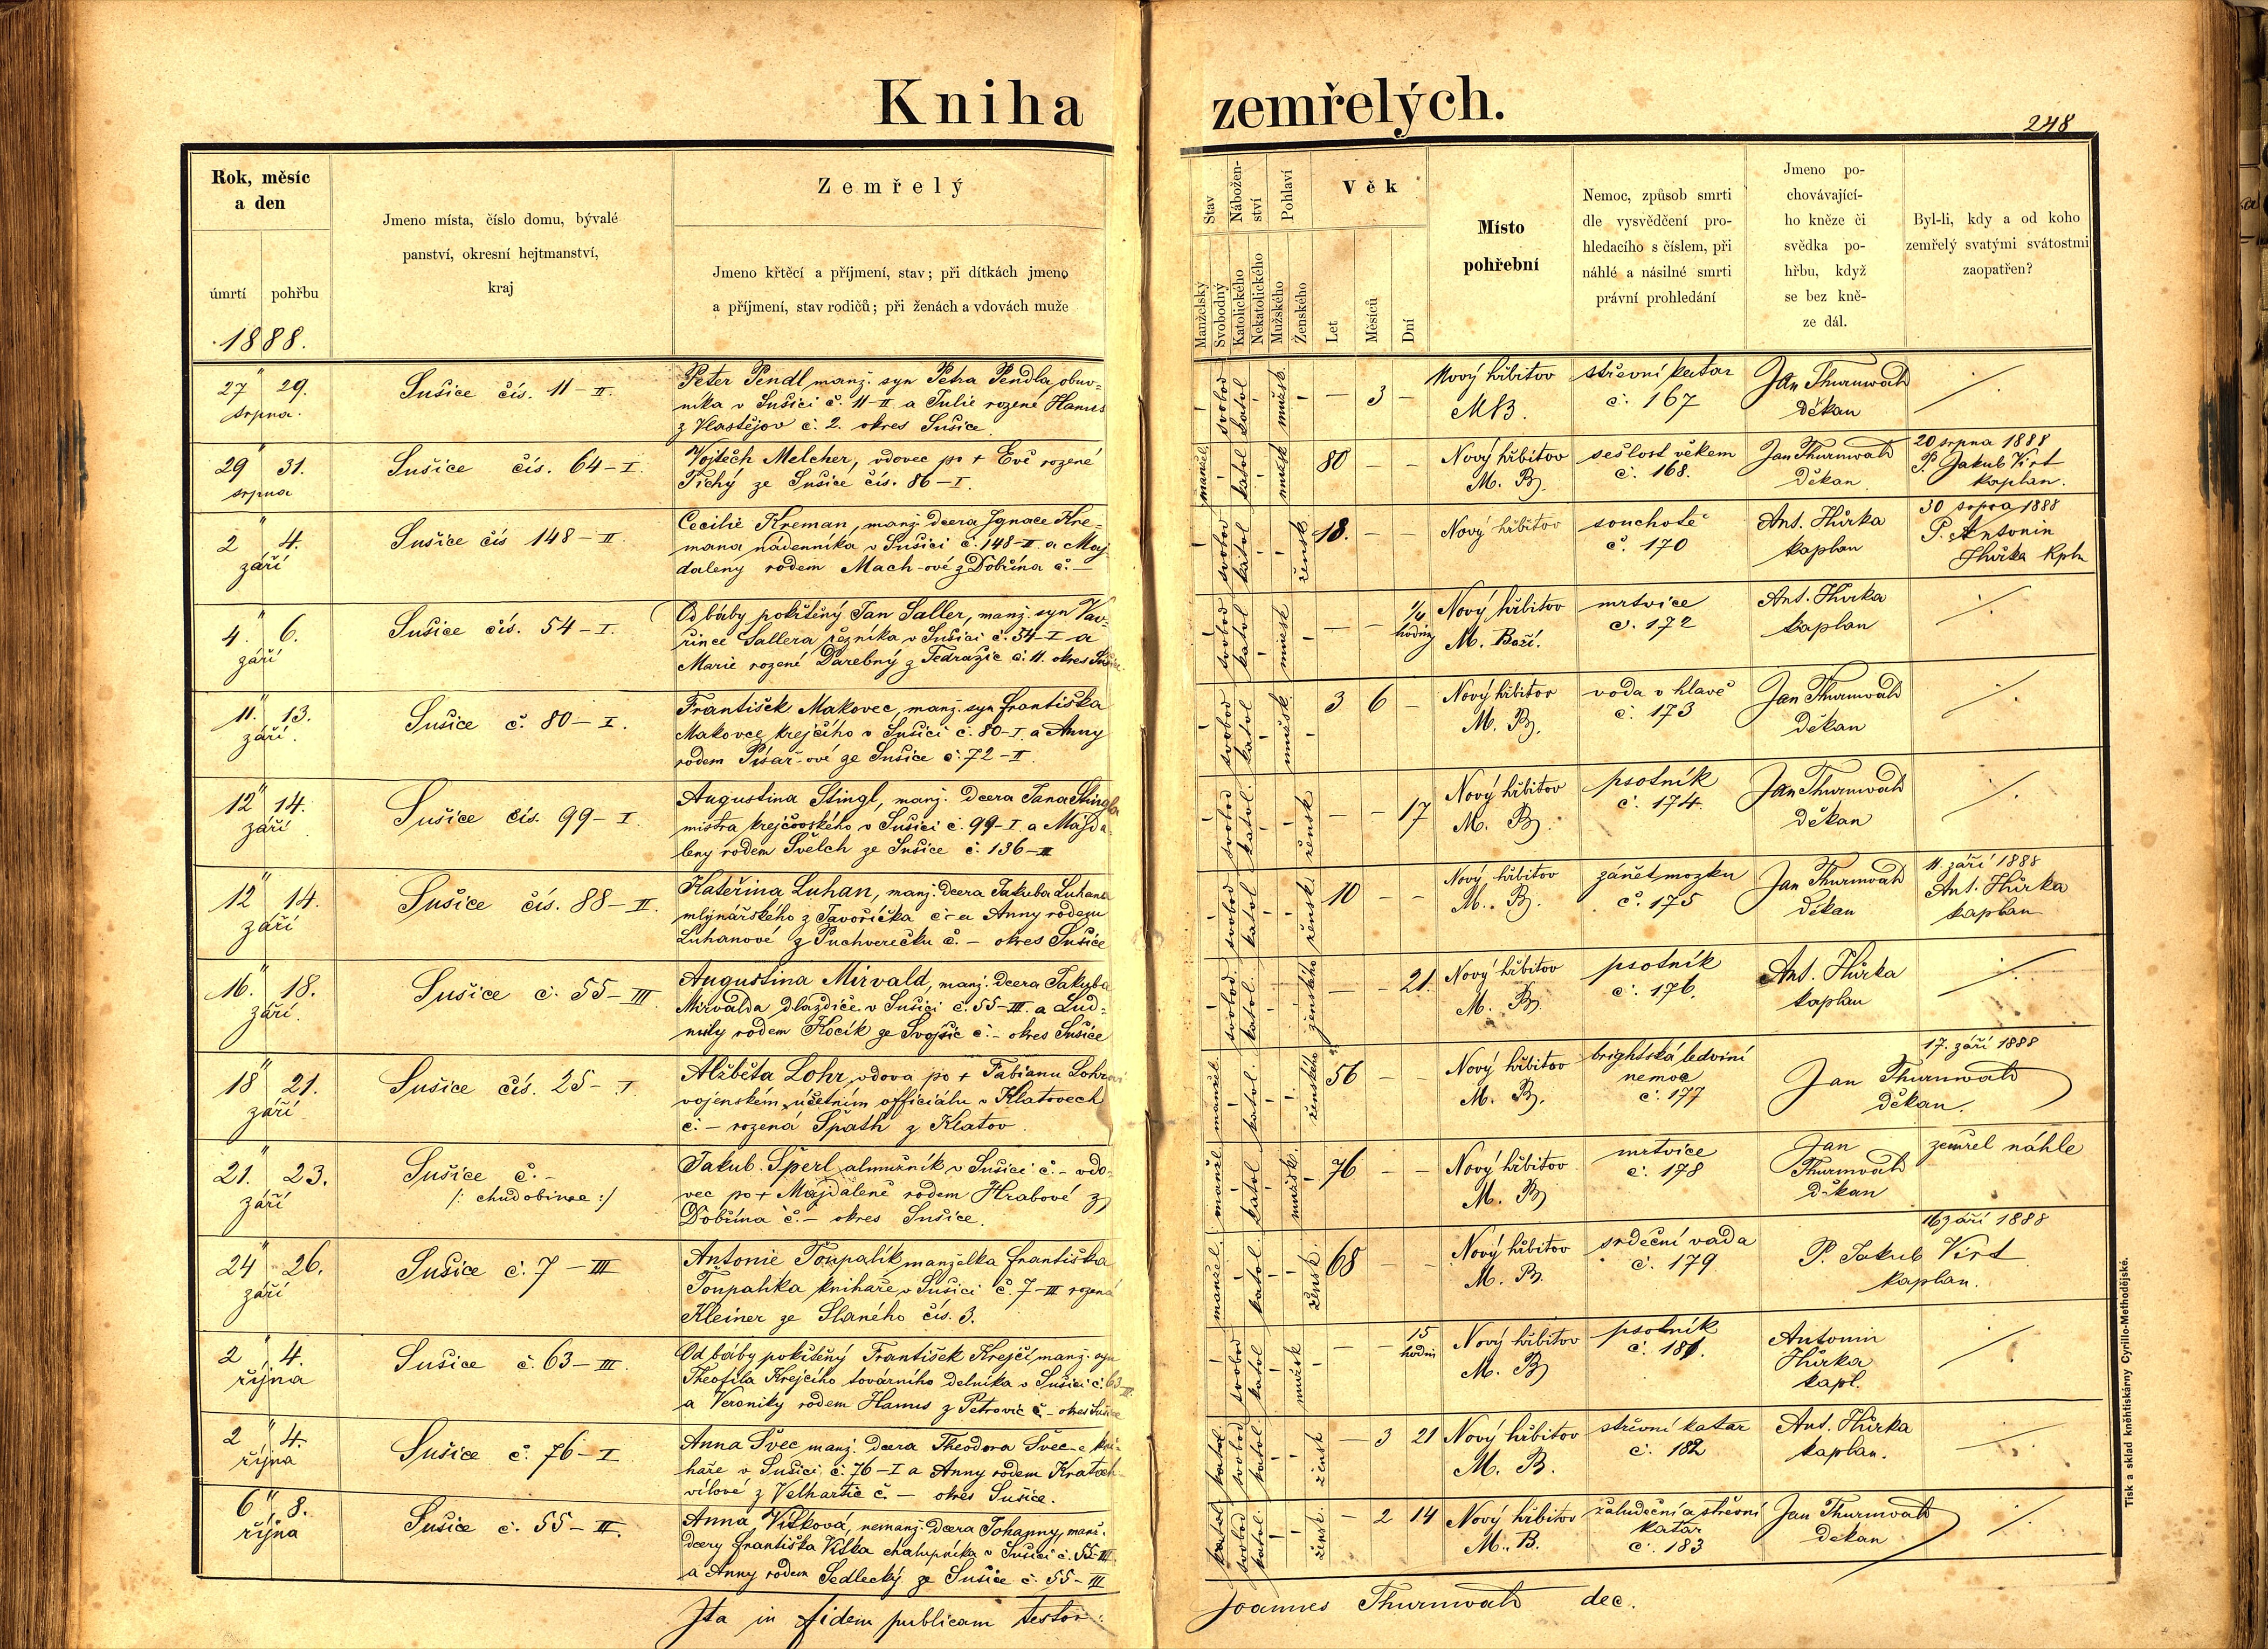 Kniha zemřelých.
248
Rok, měsíc
a den
úmrtí pohřbu
1888.
Jmeno místa, číslo domu, bývalé
panství, okresní hejtmanství,
kraj
Zemřelý
Jmeno křtěcí a příjmení, stav; při dítkách jmeno
a příjmení, stav rodičů; při ženách a vdovách muže
Stav
Manželský
Svobodný
Nábožen-
ství
Katolického
Nekatolického
Pohlaví
Mužského
Ženského
Věk
Let
Měsíců
Dní
Místo
pohřební
Nemoc, způsob smrti
dle vysvědčení pro-
hledacího s číslem, při
náhlé a násilné smrti
právní prohledání
Jmeno po-
chovávající-
ho kněze či
svědka po-
hřbu, když
se bez kně-
ze dál.
Byl-li, kdy a od koho
zemřelý svatými svátostmi
zaopatřen?
27 29.
srpna.
Sušice čís. 11-II.
Peter Pendl manž. syn Petra Pendla, obuv=
níka v Sušici č. 11-II a Julie rozené Hanus
z Vlastějov č. 2. okres Sušice
svobod katol mužsk.
— 3 —
Nový hřbitov
MB.
střevní katar
č. 167
Jan Thurnwald
Děkan
29 31.
srpna
Sušice čís. 64-I.
Vojtěch Melcher, vdovec po + Evě rozené
Tichy ze Sušice čís. 86-I.
manžel. katol mužsk
80 — —
Nový hřbitov
M. B.
sešlost věkem
č. 168.
Jan Thurnwald
Děkan
20 srpna 1888
P. Jakub Virt
kaplan.
2 4.
září
Sušice čís 148-II.
Cecilie Kreman, manž. dcera Ignace Kre=
mana nádenníka v Sušici č. 148-II. a Maj
daleny rodem Mach-ové z Dobřína č. —
svobod katol žensk
18. — —
Nový hřbitov
souchotě
č. 170
Ant. Hůrka
kaplan
30 srpna 1888
P. Antonín
Hůrka kpln
4. 6.
září
Sušice čís. 54-I.
Od báby pokřtěný Jan Saller, manž. syn Vav-
řince Sallera řezníka v Sušici č. 54-I a
Marie rozené Darebný z Tedražic č. 11. okres Sušice
svobod katol mužsk
— — 1/4 hodiny
Nový hřbitov
M. Boží.
mrtvice
č. 172
Ant. Hůrka
kaplan
11. 13.
září.
Sušice č. 80-I.
František Makovec, manž. syn Františka
Makovce krejčího v Sušici č. 80-I. a Anny
rodem Písař-ové ze Sušice č. 72-II.
svobod katol mužsk.
3 6 —
Nový hřbitov
M. B.
voda v hlavě
č. 173
Jan Thurnwald
Děkan
12 14.
září
Sušice čís. 99-I.
Augustina Stingl, manž. dcera Jana Stingla
mistra krejčovského v Sušici č. 99-I. a Majda
leny rodem Švelch ze Sušice č. 136-II
svobod katol. žensk
— — 17
Nový hřbitov
M. B.
psotník
č. 174.
Jan Thurnwald
Děkan
12 14.
září
Sušice čís. 88-II.
Kateřina Luhan, manž. dcera Jakuba Luhana
mlynářského z Javoříčka č – a Anny rodem
Luhanové z Puchverečku č. – okres Sušice
svobod katol žensk.
10 — —
Nový hřbitov
M. B.
zánět mozku
č. 175
Jan Thurnwald
děkan
11. září 1888
Ant. Hůrka
kaplan
16. 18.
září.
Sušice č. 55-III.
Augustina Mirvald, manž. dcera Jakuba
Mirvalda dlaždiče v Sušici č. 55-III. a Lud=
mily rodem Kocík ze Svojšic č. – okres Sušice
svobod. katol. ženského
— — 21.
Nový hřbitov
M. B.
psotník
č. 176.
Ant. Hůrka
kaplan
18 21.
září
Sušice čís. 25-I
Alžběta Lohr, vdova po + Fabianu Lohrovi
vojenském účetním officiálu v Klatovech
č. – rozená Späth z Klatov.
manžel. katol. ženského
56 — —
Nový hřbitov
M. B.
brightská ledviní
nemoc
č. 177
Jan Thurnwald
děkan.
17. září 1888
21. 23.
září
Sušice č. -
/: chudobinec :/
Jakub Šperl almužník v Sušici č. – vdo-
vec po + Majdaleně rodem Hrabové z
Dobřína č. – okres Sušice.
manžel katol mužsk.
76 — —
Nový hřbitov
M. B.
mrtvice
č. 178
Jan
Thurnwald
děkan
zemřel náhle
24 26.
září
Sušice č. 7-III
Antonie Toupalík manželka Františka
Toupalíka knihaře v Sušici č. 7-III rozená
Kleiner ze Slaného čís. 3.
manžel. katol. žensk.
68 — —
Nový hřbitov
M. B.
srdeční vada
č. 179
P. Jakub Virt
kaplan.
16 září 1888
2 4.
října
Sušice č. 63-III.
Od báby pokřtěný František Krejčí manž. syn
Theofila Krejčího továrního dělníka v Sušici č. 63-III
a Veroniky rodem Hanus z Petrovic č. – okres Sušice
svobod katol mužsk
— — 15 hodin
Nový hřbitov
M. B.
psotník
č. 181.
Antonín
Hůrka
kapl.
2 4.
října
Sušice č. 76-I
Anna Švec manž. dcera Theodora Švec-e kni-
haře v Sušici č. 76-I a Anny rodem Kratoch-
vílové z Velhartic č. – okres Sušice.
katol svobod katol. žensk
— 3 21
Nový hřbitov
M. B.
střevní katar
č. 182
Ant. Hůrka
kaplan.
6 8.
října
Sušice č. 55-III.
Anna Víšková, nemanž. dcera Johanny, manž.
dcery Františka Víška chalupníka v Sušici č. 55-III.
a Anny rodem Sedlecký ze Sušice č. 55-III
katol svobod katol. žensk.
— 2 14
Nový hřbitov
M. B.
žaludeční a střevní
katar
č. 183
Jan Thurnwald
děkan
Ita in fidem publicam testor:
Joannes Thurnwald dec.
Tisk a sklad kněhtiskárny Cyrillo-Methodějské.